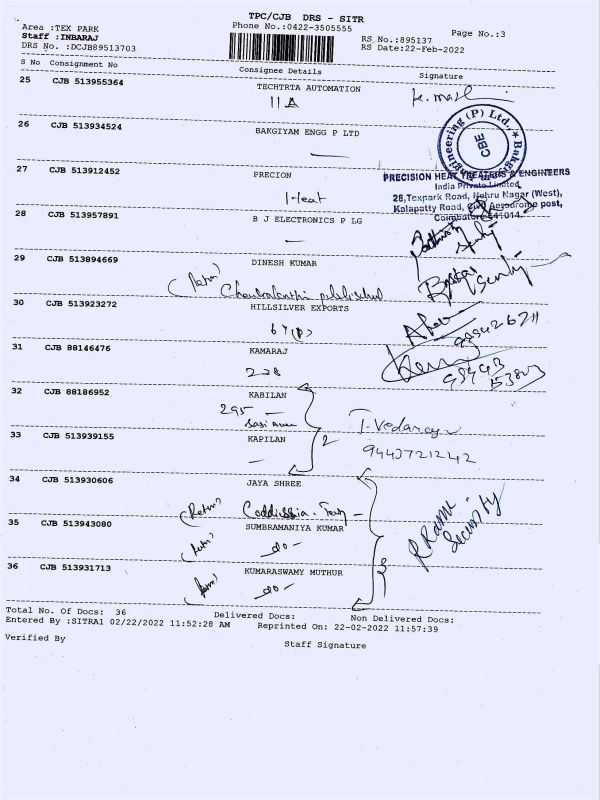 TPC/CJB DRS - SITR
Area :TEX PARK
Phone No.:0422-3505555
Page No.:3
Staff :INBARAJ
RS No.:895137
DRS No. :DCJB89513703
RS Date:22-Feb-2022
S No Consignment No Consignee Details Signature
25 CJB 513955364 TECHTRTA AUTOMATION
11A
26 CJB 513934524 BAKGIYAM ENGG P LTD
Engineering (P) Ltd., ★ Bakgiyam
CBE
27 CJB 513912452 PRECION
Heat
PRECISION HEAT TREATERS & ENGINEERS
India Private Limited
28, Texpark Road, Nehru Nagar (West),
Kalapatty Road, Civil Aerodrome post,
Coimbatore-641014.
28 CJB 513957891 B J ELECTRONICS P LG
29 CJB 513894669 DINESH KUMAR
(Return)
30 CJB 513923272 HILLSILVER EXPORTS
67(P)
31 CJB 88146476 KAMARAJ
228
32 CJB 88186952 KABILAN
295
T. Vedaraya
33 CJB 513939155 KAPILAN
2
9443721242
34 CJB 513930606 JAYA SHREE
(Return)
35 CJB 513943080 SUMBRAMANIYA KUMAR
(Return) -do-
Security
36 CJB 513931713 KUMARASWAMY MUTHUR
(Return) -do-
3
Total No. Of Docs: 36 Delivered Docs: Non Delivered Docs:
Entered By :SITRA1 02/22/2022 11:52:28 AM Reprinted On: 22-02-2022 11:57:39
Verified By Staff Signature